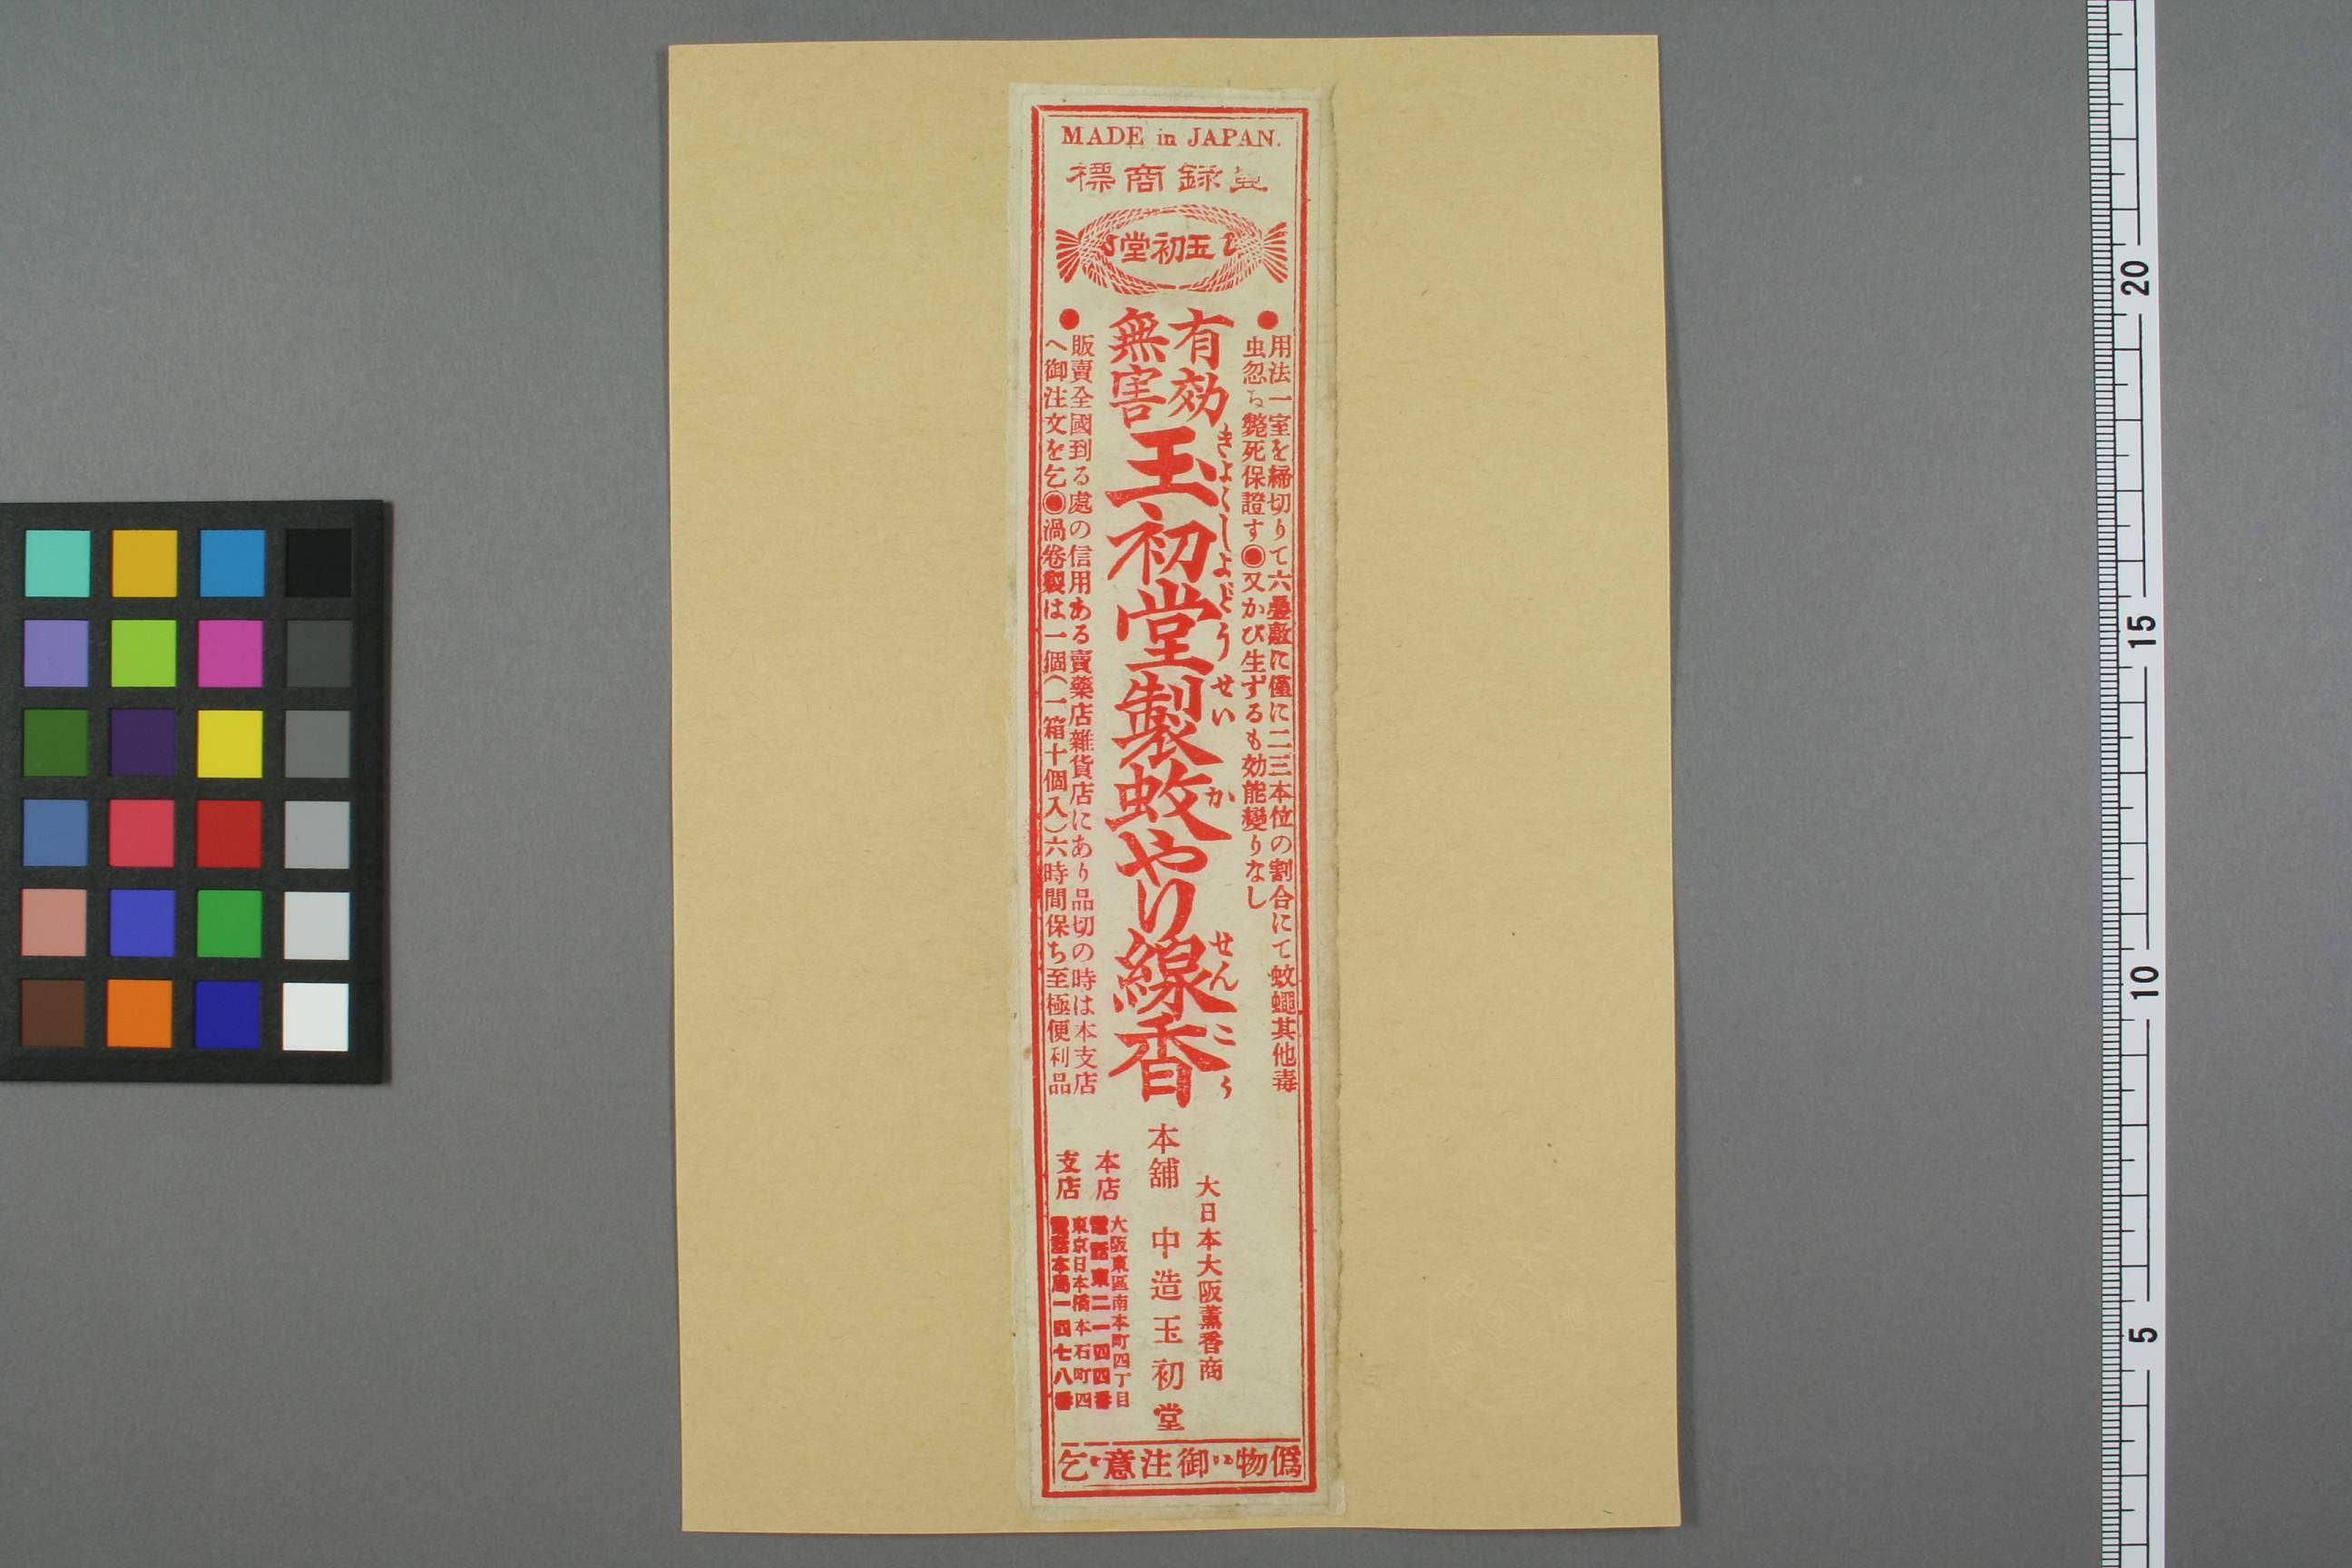 MADE in JAPAN.
登録商標
玉初堂
●用法一室を締切りて六疊敷に僅に二三本位の割合にて蚊蠅其他毒
虫忽ち斃死保證す◉又かび生ずるも効能變りなし
有効
無害
きよくしよどうせいかせんこう
玉初堂製蚊やり線香
●販賣全國到る處の信用ある賣藥店雜貨店にあり品切の時は本支店
へ御注文を乞◉渦卷製は一個(一箱十個入)六時間保ち至極便利品
大日本大阪薫香商
本舖 中造玉初堂
本店
大阪東區南本町四丁目
電話東二一四四番
支店
東京日本橋本石町四
電話本局一四七八番
僞物に御注意を乞
20
15
10
5